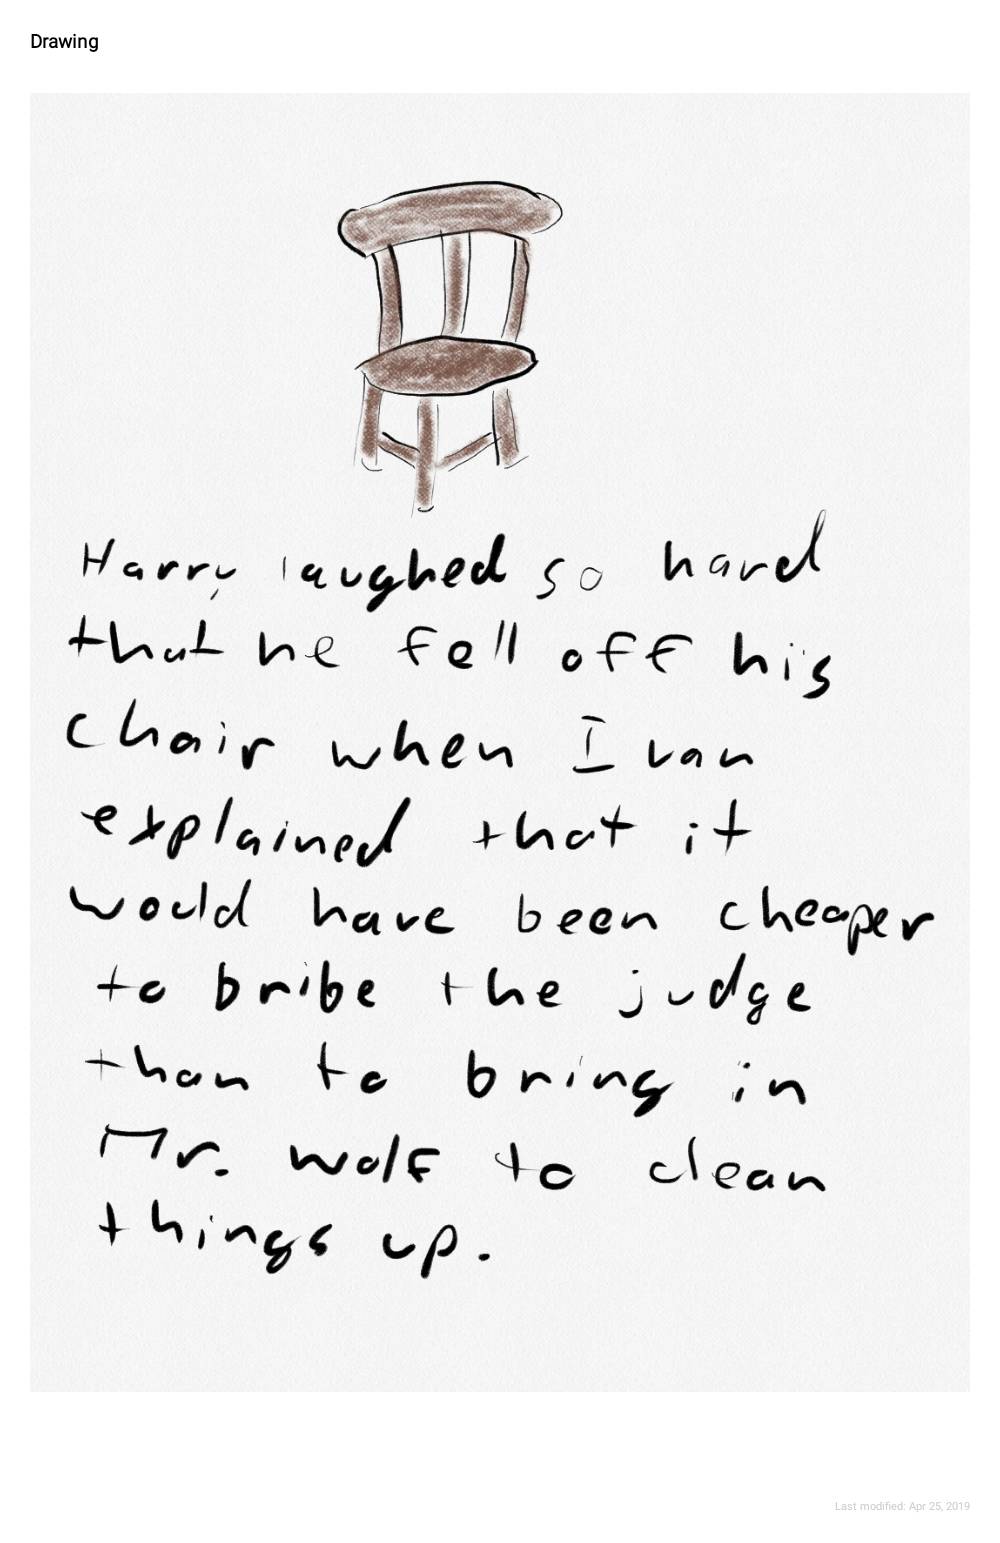 Drawing
Harry laughed so hard
that he fell off his
chair when Ivan
explained that it
would have been cheaper
to bribe the judge
than to bring in
Mr. Wolf to clean
things up.
Last modified: Apr 25, 2019